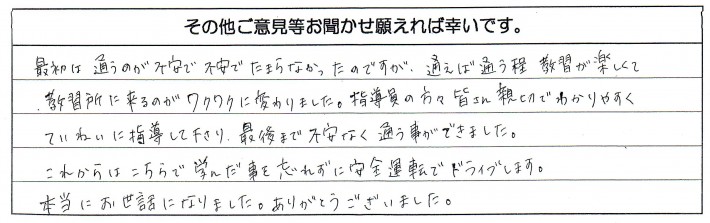 その他ご意見等お聞かせ願えれば幸いです。
最初は通うのが不安で不安でたまらなかったのですが、通えば通う程教習が楽しくて
教習所に来るのがワクワクに変わりました。指導員の方々皆さん親切でわかりやすく
ていねいに指導して下さり、最後まで不安なく通う事ができました。
これからはこちらで学んだ事を忘れずに安全運転でドライブします。
本当にお世話になりました。ありがとうございました。